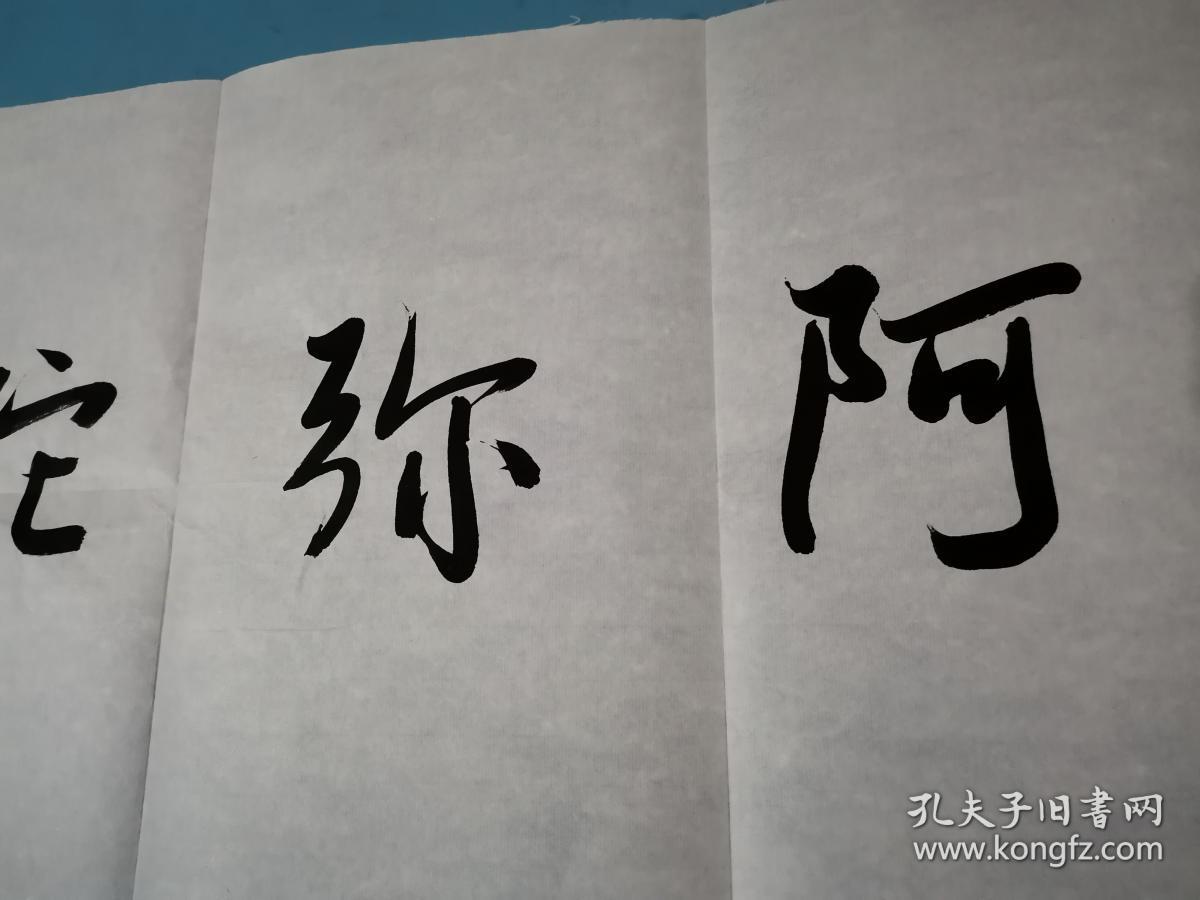 阿弥
孔夫子旧書网
www.kongfz.com